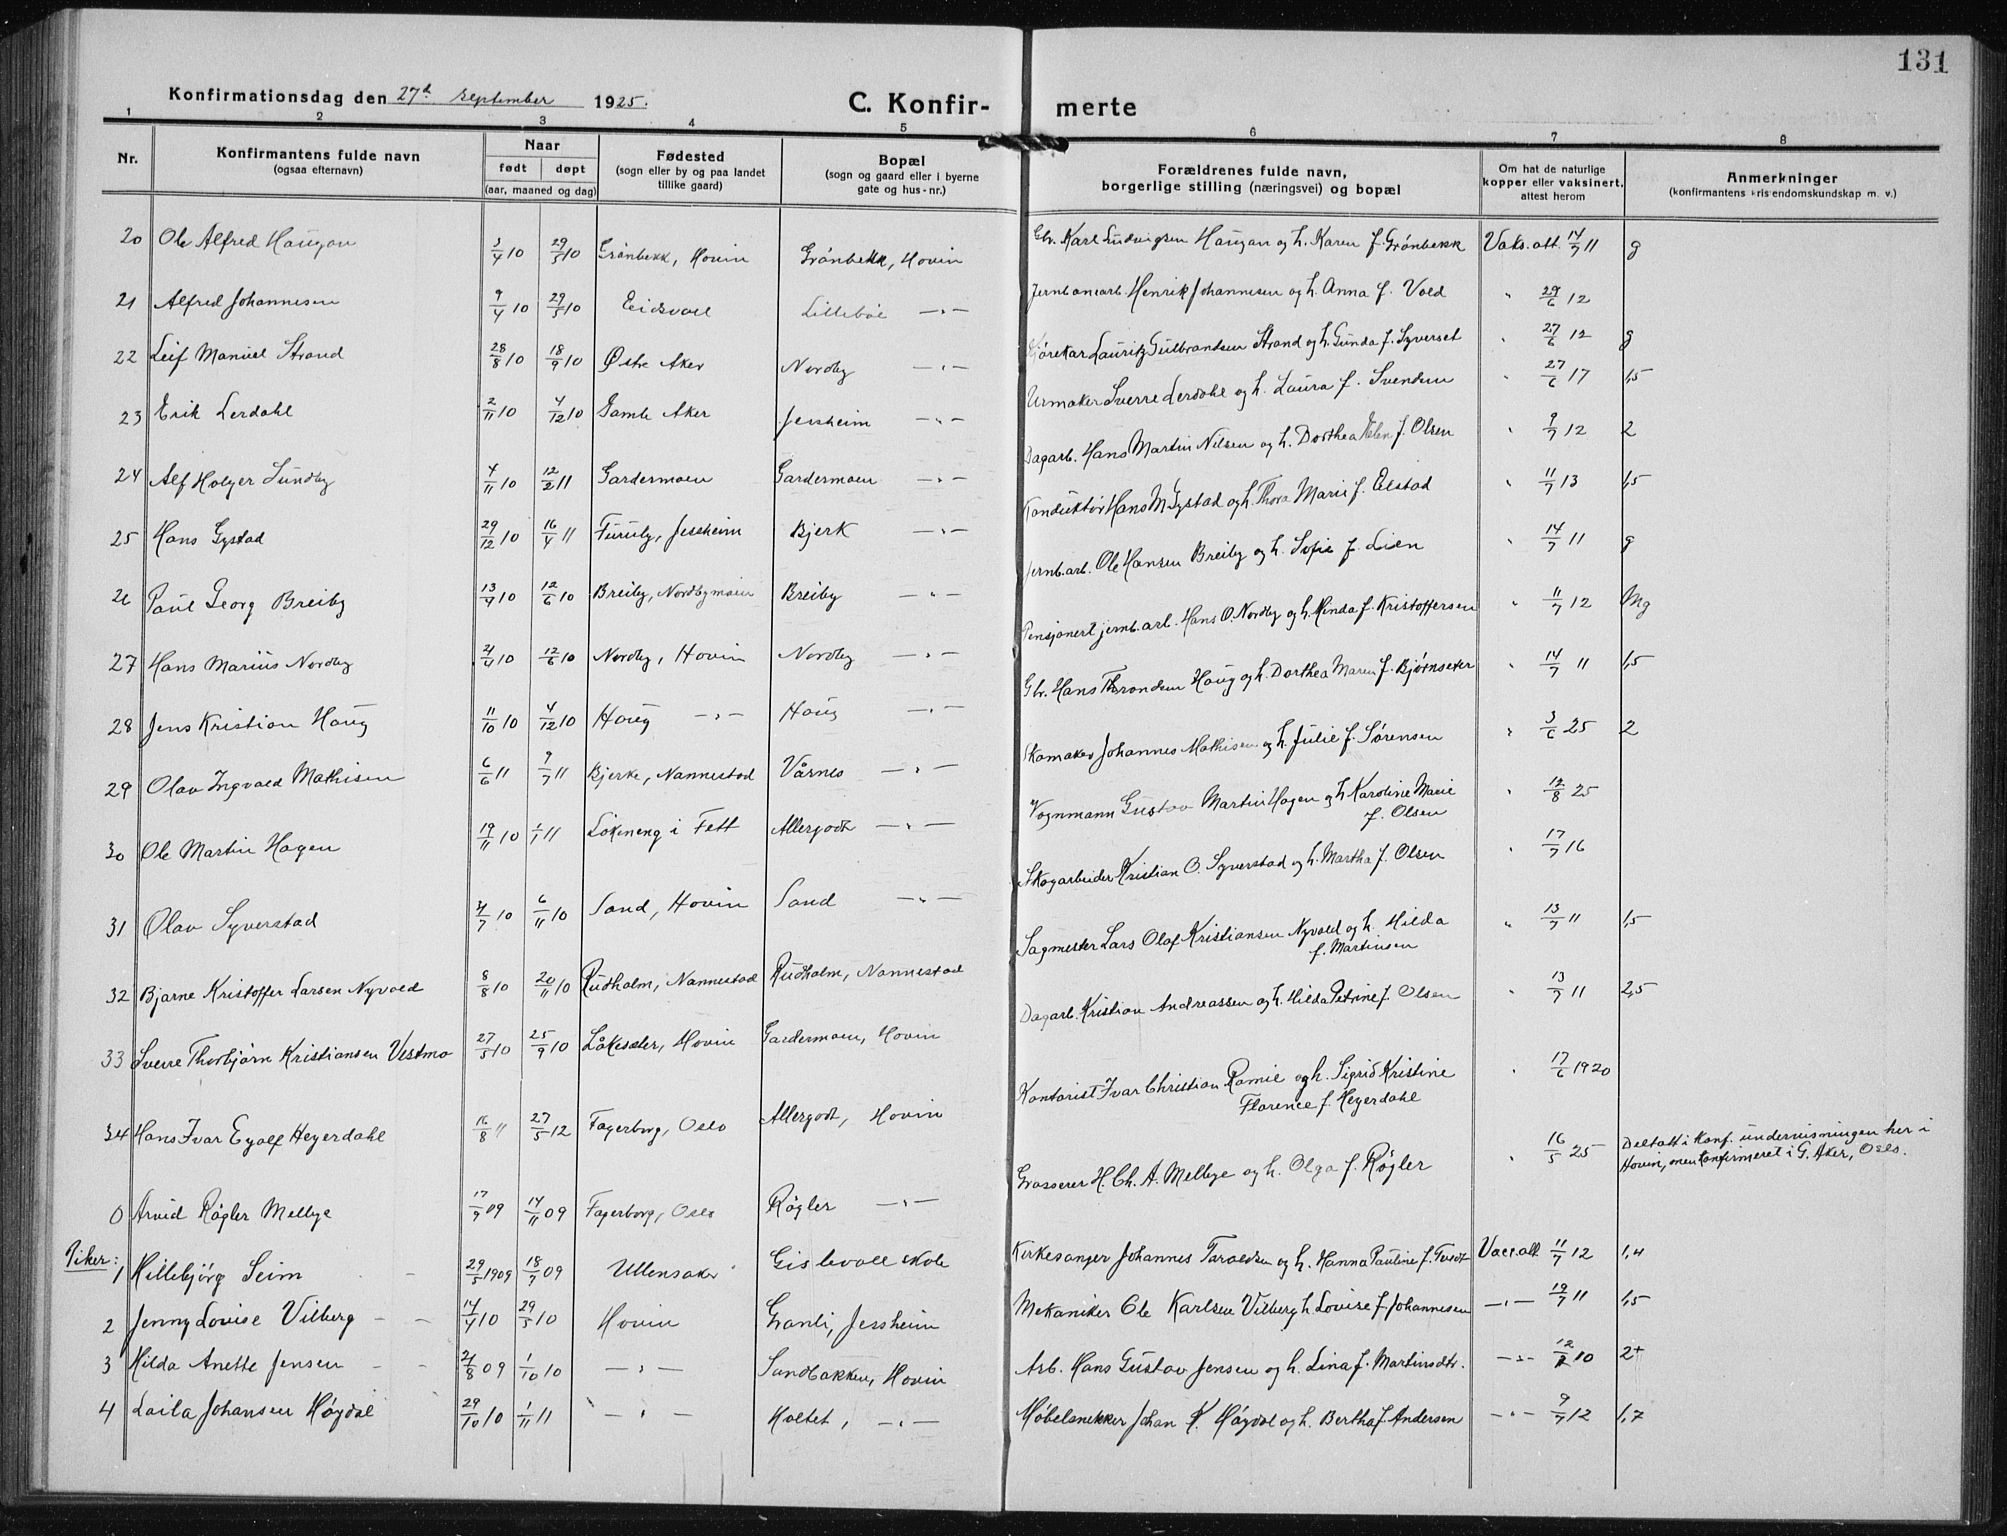 131
Konfirmationsdag den 27de september 1925.
C. Konfirmerte
1 2 3 4 5 6 7 8
Nr. | Konfirmantens fulde navn (ogsaa efternavn) | Naar født | døpt (aar, maaned og dag) | Fødested (sogn eller by og paa landet tillike gaard) | Bopæl (sogn og gaard eller i byerne gate og hus-nr.) | Forældrenes fulde navn, borgerlige stilling (næringsvei) og bopæl | Om hat de naturlige kopper eller vaksinert, attest herom | Anmerkninger (konfirmantens kristendomskundskap m. v.)
20 Ole Alfred Haugan 3/4 10 29/5 10 Grønbekk, Hovin Grønbekk, Hovin Gbr. Karl Ludvigsen Haugan og h. Karen f. Grønbekk Vaks. att. 14/7 11 g
21 Alfred Johannesen 9/4 10 29/5 10 Eidsvoll Lillebøl —"— Jernbanearb. Henrik Johannesen og h. Anna f. Vold " 29/6 12
22 Leif Manuel Strand 28/8 10 18/9 10 Østre Aker Nordby —"— Kjørekar Lauritz Gulbrandsen Strand og h. Gunda f. Syverset " 27/6 12 g
23 Erik Lerdahl 2/11 10 4/12 10 Gamle Aker Jessheim —"— Urmaker Sverre Lerdahl og h. Laura f. Svendsen " 27/6 17 1,5
24 Alf Holger Sundby 4/11 10 12/2 11 Gardermoen Gardermoen —"— Dagarb. Hans Martin Nilsen og h. Dorthea Helen f. Olsen " 9/7 12 2
25 Hans Gystad 29/12 10 16/4 11 Furuly, Jessheim Bjerk —"— Konduktør Hans M Gystad og h. Thora Marie f. Elstad " 11/7 13 1,5
26 Paul Georg Breiby 13/4 10 12/6 10 Breiby, Nordbymoen Breiby —"— Jernb.arb. Ole Hansen Breiby og h. Sofie f. Lien " 14/7 11 g
27 Hans Marius Nordby 21/4 10 12/6 10 Nordby, Hovin Nordby —"— Pensjonert jernb. arb. Hans O. Nordby og h. Minda f. Kristoffersen " 11/7 12 Mg
28 Jens Kristian Haug 11/10 10 4/12 10 Haug —"— Haug —"— Gbr. Hans Throndsen Haug og h. Dorthea Maren f. Bjørnseter " 14/7 11 1,5
29 Olav Ingvald Mathisen 6/6 11 9/7 11 Bjerke, Nannestad Vårnes —"— Skomaker Johannes Mathisen og h. Julie f. Sørensen " 3/6 25 2
30 Ole Martin Hagen 19/11 10 1/1 11 Løkeneng i Fett Allergodt —"— Vognmann Gustav Martin Hagen og h Karoline Marie
f. Olsen " 12/8 25
31 Olav Syverstad 21/7 10 6/11 10 Sand, Hovin Sand —"— Skogarbeider Kristian O. Syverstad og h. Martha f. Olsen " 17/7 16
32 Bjarne Kristoffer Larsen Nyvold 8/8 10 20/11 10 Rudholm, Nannestad Rudholm, Nannestad Sagmester Lars Olaf Kristiansen Nyvold og h. Hilda
f. Martinsen " 13/7 11 1,5
33 Sverre Thorbjørn Kristiansen Vestmo 27/5 10 25/9 10 Låkeseter, Hovin Gardermoen, Hovin Dagarb. Kristian Andreassen og h. Hilda Petrine f. Olsen " 13/7 11 2,5
34 Hans Ivar Eyolf Heyerdahl 16/8 11 27/5 12 Fagerborg, Oslo Allergodt, Hovin Kontorist Ivar Christian Ramie og h. Sigrid Kristine
Florence f. Heyerdahl " 17/6 1920
0 Arvid Røgler Melbye 17/9 09 14/11 09 Fagerborg, Oslo Røgler —"— Grosserer H. Ch. A. Melbye og h. Olga f. Røgler " 16/5 25 Deltatt i konf. undervisningen her i
Hovin, men konfirmeret i G. Aker, Oslo.
Piker:
1 Hillebjørg Seim 29/5 1909 18/7 09 Ullensaker Gislevoll skole Kirkesanger Johannes Taraldsen og h. Hanna Pauline f. Tvedt Vacc. att 11/7 12 1,4
2 Jenny Lovise Vilberg 14/4 10 29/5 10 Hovin Granli, Jessheim Mekaniker Ole Karlsen Vilberg h. Lovise f. Johannesen —"— 19/7 11 1,5
3 Hilda Anette Jensen 21/8 09 1/10 10 —"— Sandbakken, Hovin Arb. Hans Gustav Jensen og h. Lina f. Martinsdtr. —"— 12/2 10 2+
4 Laila Johansen Høydal 29/10 10 1/11 11 —"— Holtet, —"— Møbelsnekker Johan K. Høydal og h. Bertha f. Andersen —"— 9/7 12 1,7